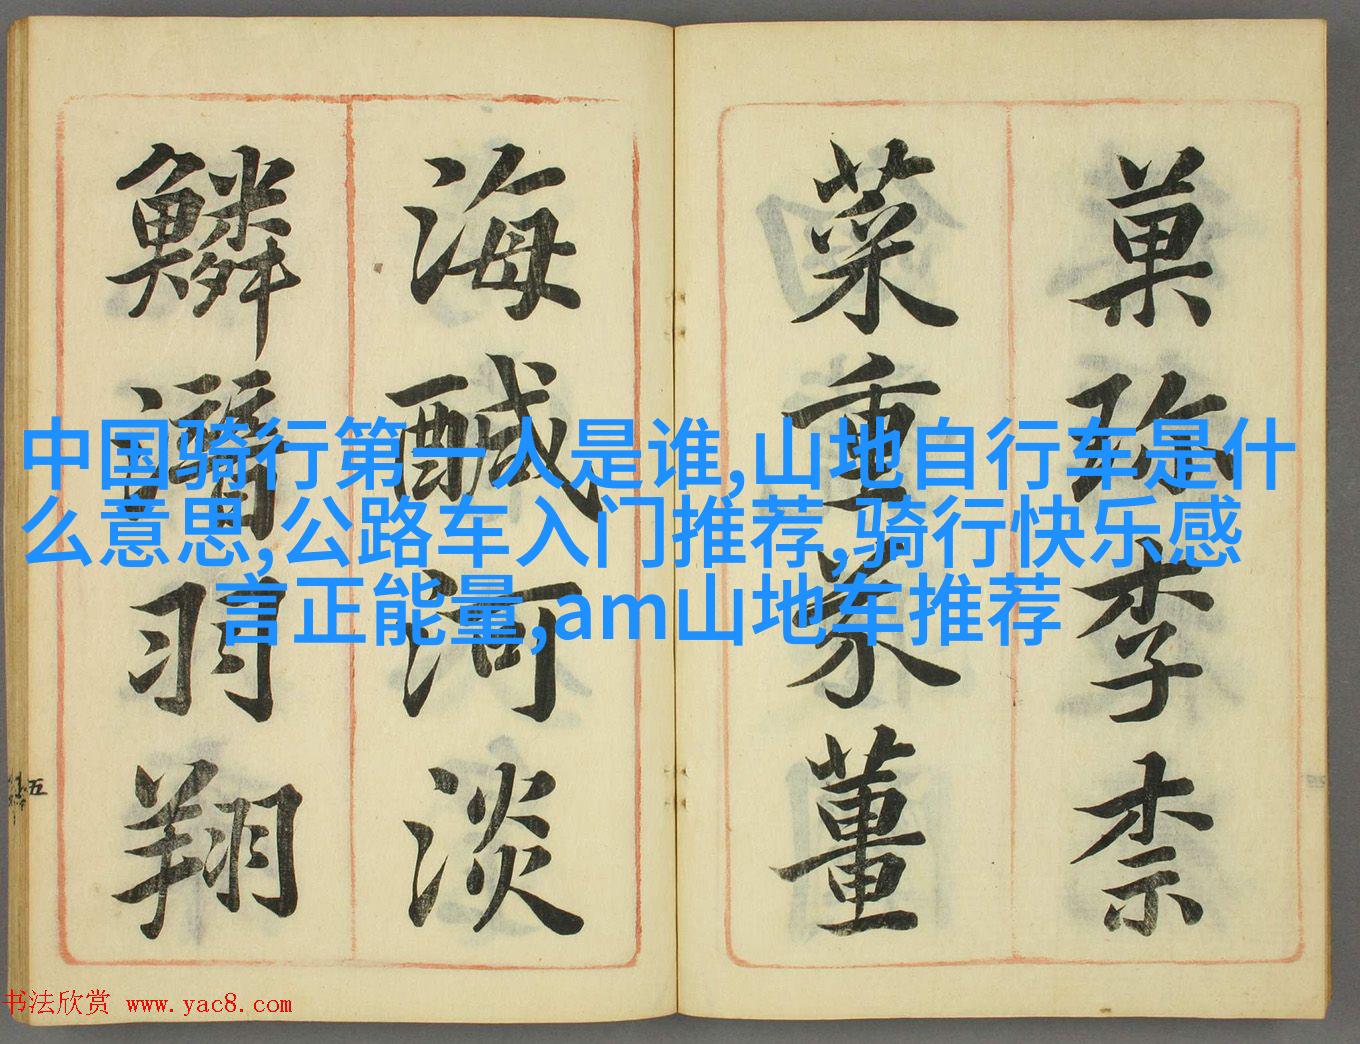 菓珍李柰
菜重芥薑
海醎河淡
鱗潛羽翔
五
中国骑行第一人是谁,山地自行车是什
么意思,公路车入门推荐,骑行快乐感
言正能量,am山地车推荐
书法欣赏 www.yac8.com